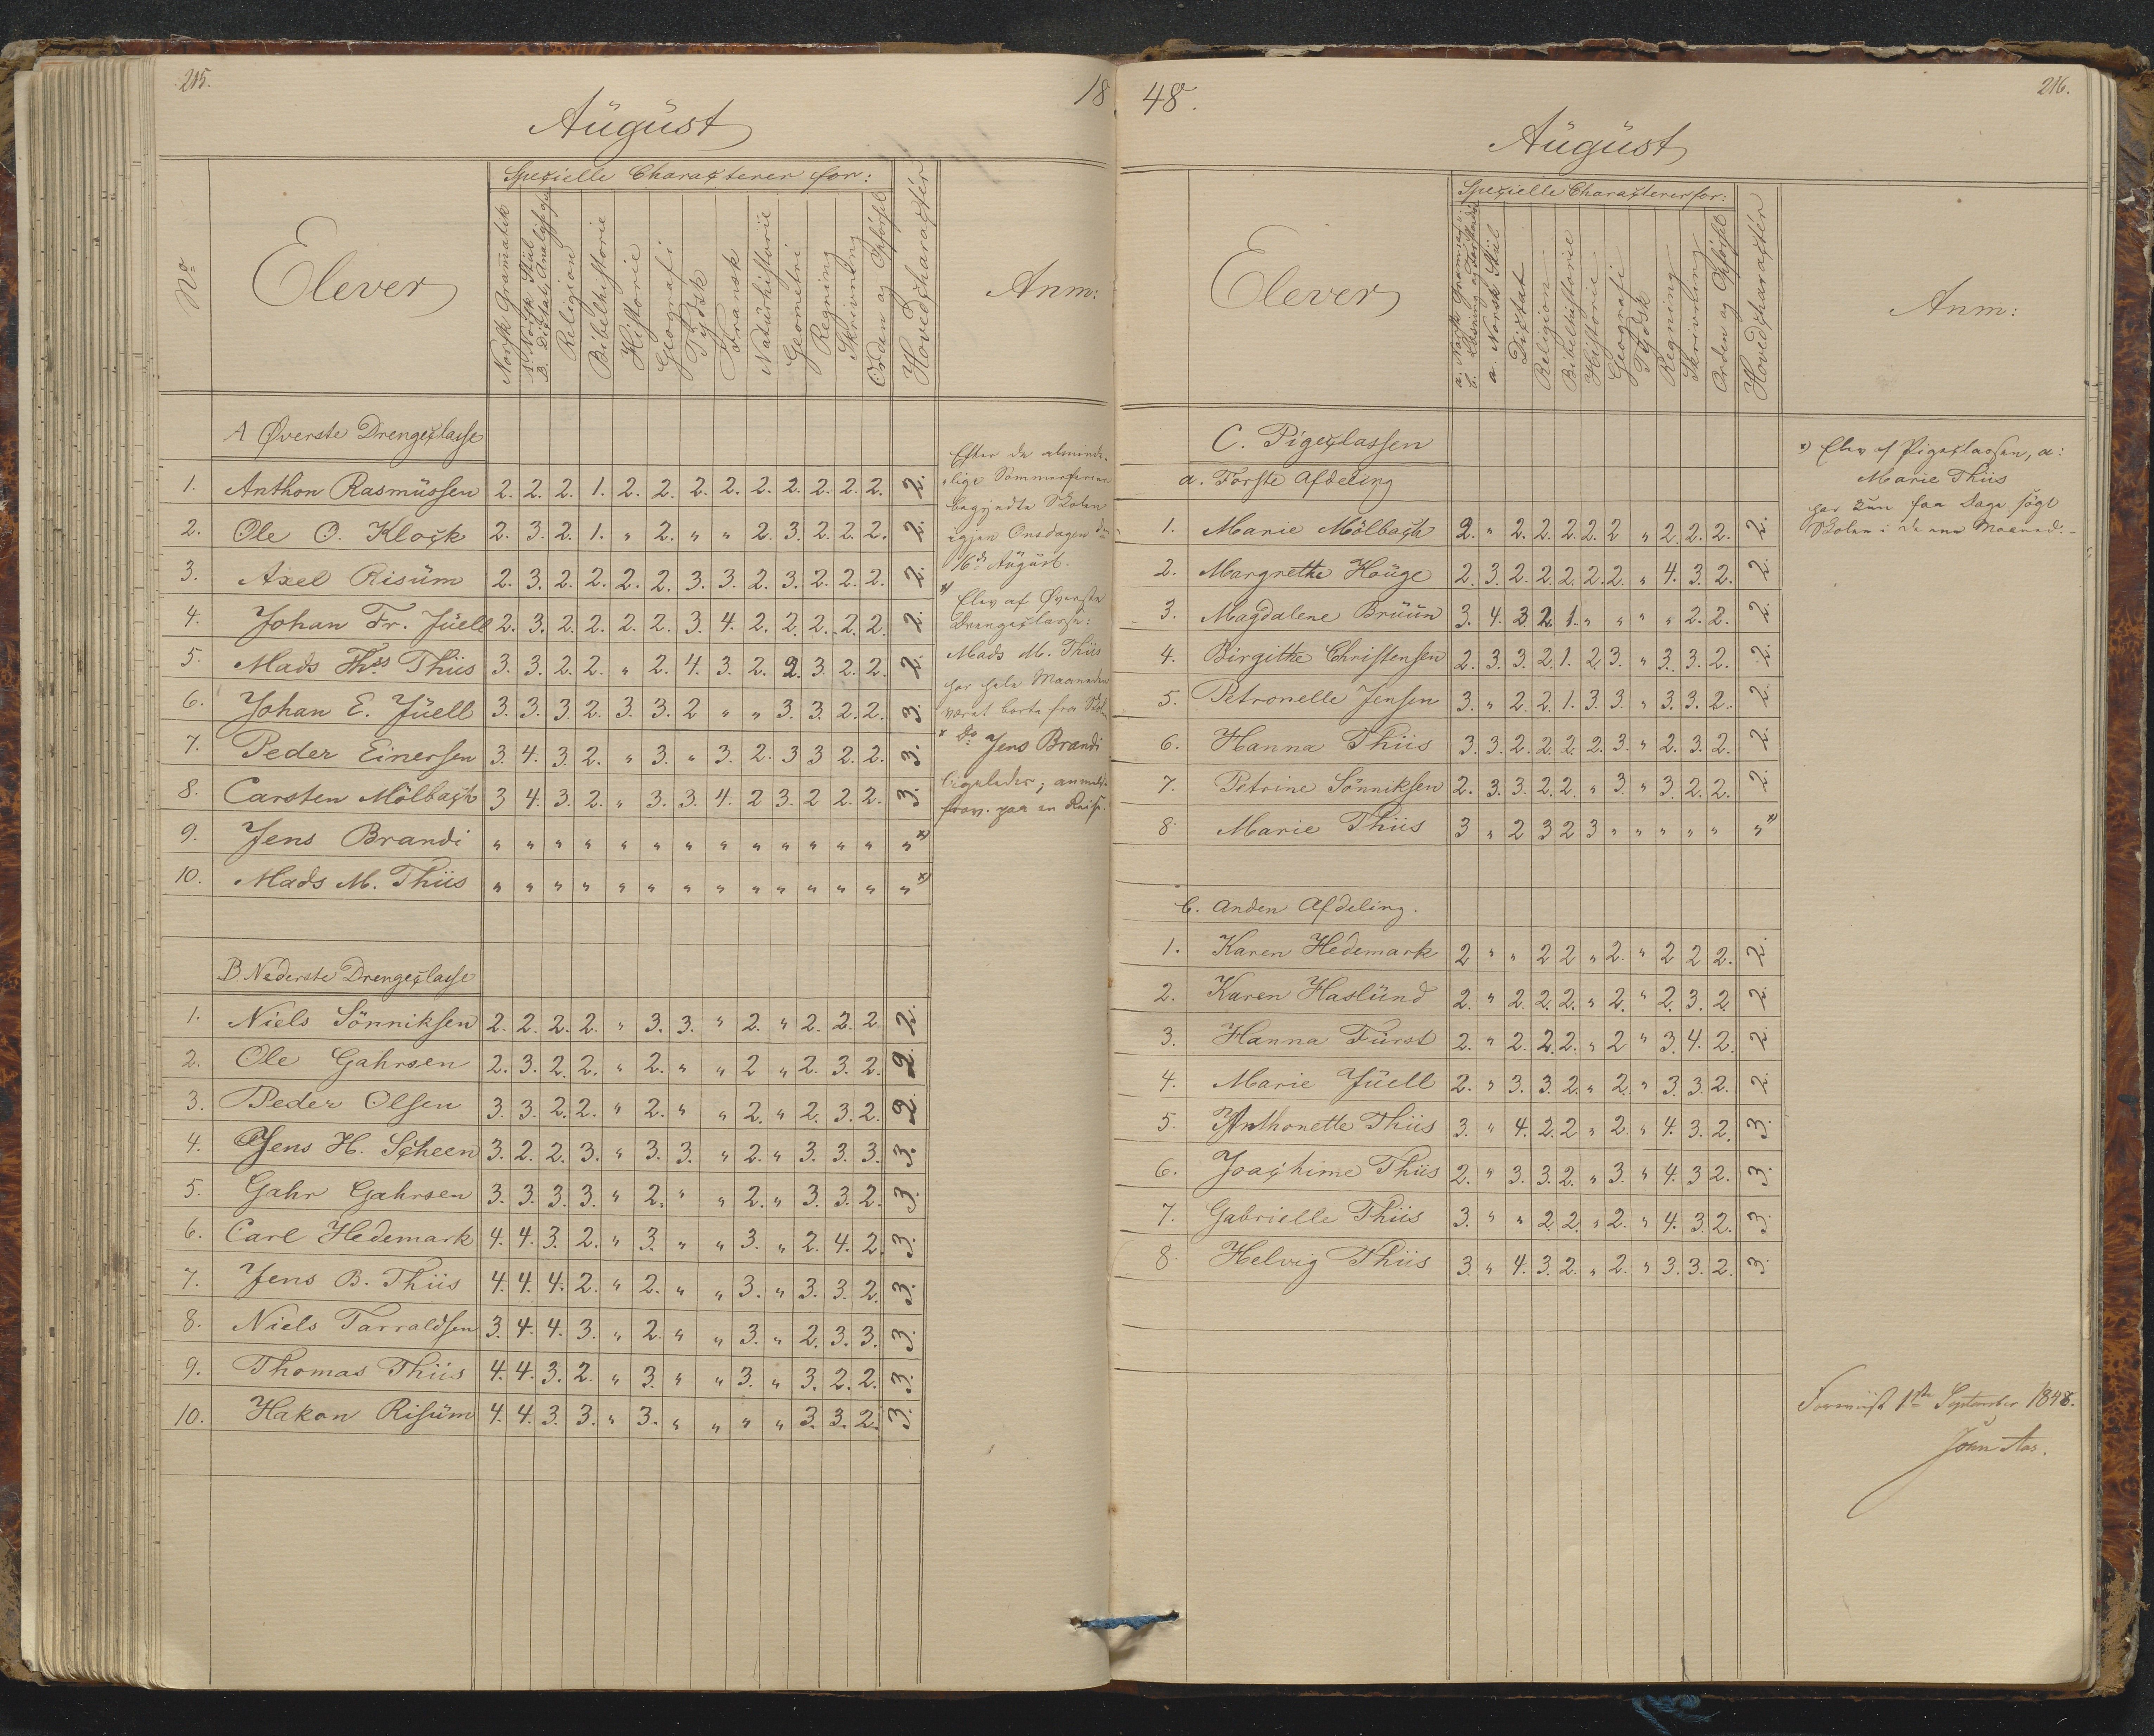 215.
18
August
Spezielle Characterer for:
No
Elever
Norsk Grammatik
a. Norsk Stiil
B. Diktat, Analyse
Religion
Bibelhistorie
Historie
Geografi
Tydsk
Fransk
Naturhistorie
Geometri
Regning
Skrivning
Orden og Opførsel
Hovedcharacter
Anm:
A Øverste Drengeclasse
1. Anthon Rasmüssen 2. 2. 2. 1. 2. 2. 2. 2. 2. 2. 2. 2. 2. 2.
2. Ole O. Klock 2. 3. 2. 1. " 2. " " 2. 3. 2. 2. 2. 2.
3. Axel Risüm 2. 3. 2. 2. 2. 2. 3. 3. 2. 3. 2. 2. 2. 2.
4. Johan Fr. Jüell 2. 3. 2. 2. 2. 2. 3. 4. 2. 2. 2. 2. 2. 2.
5. Mads Ths Thiis 3. 3. 2. 2. " 2. 4. 3. 2. 2. 3. 2. 2. 2.
6. Johan E. Jüell 3. 3. 3. 2. 3. 3. 2 " " 3. 3. 2. 2. 3.
7. Peder Einersen 3. 4. 3. 2. " 3. " 3. 2. 3 3 2. 2. 3.
8. Carsten Mölbach 3 4. 3. 2. " 3. 3. 4. 2 3. 2 2. 2. 3.
9. Jens Brandi " " " " " " " " " " " " " " *)
10. Mads M. Thiis " " " " " " " " " " " " " " *)
B. Nederste Drengeclasse
1. Niels Sönniksen 2. 2. 2. 2. " 3. 3. " 2. " 2. 2. 2 2.
2. Ole Gahrsen 2. 3. 2. 2. " 2. " " 2 " 2. 3. 2. 2.
3. Peder Olsen 3. 3. 2. 2. " 2. " " 2. " 2. 3. 2. 2.
4. Jens H. Scheen 3. 2. 2. 3. " 3. 3. " 2. " 3. 3. 3. 3.
5. Gahr Gahrsen 3. 3. 3. 3. " 2. " " 2. " 3. 3. 2. 3.
6. Carl Hedemark 4. 4. 3. 2. " 3. " " 3. " 2. 4. 2. 3.
7. Jens B. Thiis 4. 4. 4. 2. " 2. " " 3. " 3. 3. 2. 3.
8. Niels Tarraldsen 3. 4. 4. 3. " 2. " " 3. " 2. 3. 3. 3.
9. Thomas Thiis 4. 4. 3. 2. " 3. " " 3. " 3. 2. 2. 3.
10. Hakon Risüm 4. 4. 3. 3. " 3. " " " " 3. 3. 2. 3.
Efter de alminde-
lige Sommerferier
begyndte Skolen
igjen Onsdagen
16de August.
*) Elev af Øverste
Drengeclasse:
Mads M. Thiis
har hele Maaneden
været borte fra
* Do Jens Brandi
ligeledes;
paa en Reise.
48.
216.
August
Spezielle Characterer for:
Elever
a. Norsk Grammatik
b. Læsning og Forstand
a. Norsk Stiil
Diktat
Religion
Bibelhistorie
Historie
Geografi
Tydsk
Regning
Skrivning
Orden og Opførsel
Hovedcharacter
Anm:
C. Pigeclassen
a. Første Afdeling
1. Marie Mölbach 2. " 2. 2. 2. 2. 2 " 2. 2. 2. 2.
2. Margrethe Houge 2. 3. 2. 2. 2. 2. 2. " 4. 3. 2. 2.
3. Magdalene Bruün 3. 4. 3 2. 1. " " " " 2. 2. 2.
4. Birgitte Christensen 2. 3. 3. 2. 1. 2 3. " 3. 3. 2. 2.
5. Petronelle Jensen 3. " 2. 2. 1. 3. 3. " 3. 3. 2. 2.
6. Hanna Thiis 3. 3. 2. 2. 2. 2. 3. " 2. 3. 2. 2.
7. Petrine Sönniksen 2. 3. 3. 2. 2. " 3. " 3. 2. 2. 2.
8. Marie Thiis 3 " 2 3 2 3 " " " " " " *)
b. Anden Afdeling.
1. Karen Hedemark 2 " " 2 2 " 2. " 2 2 2. 2.
2. Karen Haslünd 2. " 2. 2. 2. " 2. " 2. 3. 2 2.
3. Hanna Fürst 2. " 2. 2. 2. " 2 " 3. 4. 2. 2.
4. Marie Jüell 2. " 3. 3. 2. " 2. " 3. 3. 2. 2.
5. Anthonette Thiis 3. " 4. 2. 2 " 2. " 4. 3. 2. 3.
6. Joachime Thiis 2. " 3. 3. 2. " 3. " 4. 3 2. 3.
7. Gabrielle Thiis 3. " " 2. 2. " 2. " 4. 3. 2. 3.
8. Helvig Thiis 3. " 4. 3. 2. " 2. " 3. 3. 2. 3.
*) Elev af Pigeclassen, a:
Marie Thiis
har kun faa Dage søgt
Skolen i denne Maaned.
1ste September 1848.
John Aas.